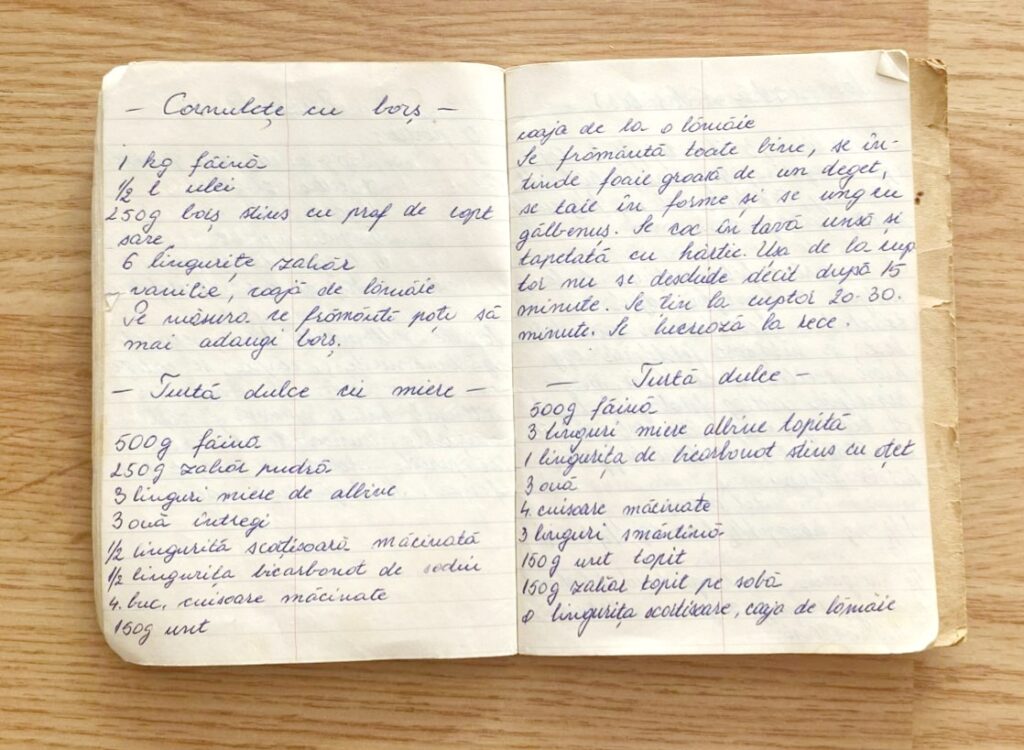 — Cornulețe cu borș —
1 kg făină
1/2 l ulei
250g borș stins cu praf de copt
sare
6 lingurițe zahăr
vanilie, coajă de lămâie
Pe măsura ce frămânți poți să
mai adaugi borș.
— Turtă dulce cu miere —
500g făină
250g zahăr pudră
3 linguri miere de albine
3 ouă întregi
1/2 linguriță scorțisoară măcinată
1/2 lingurița bicarbonat de sodiu
4. buc. cuisoare măcinate
150g unt
coaja de la o lămâie
Se frământă toate bine, se în-
tinde foaie groasă de un deget,
se taie în forme și se ung cu
gălbenuș. Se coc în tavă unsă și
tapetată cu hârtie. Usa de la cup
tor nu se deschide decît după 15
minute. Se țin la cuptor 20-30.
minute. Se lucrează la rece.
— Turtă dulce —
500g făină
3 linguri miere albine topită
1 lingurița de bicarbonat stins cu oțet
3 ouă
4 cuisoare măcinate
3 linguri smântână
150g unt topit
150g zahăr topit pe sobă
o lingurița scortisoare, coaja de lămâie